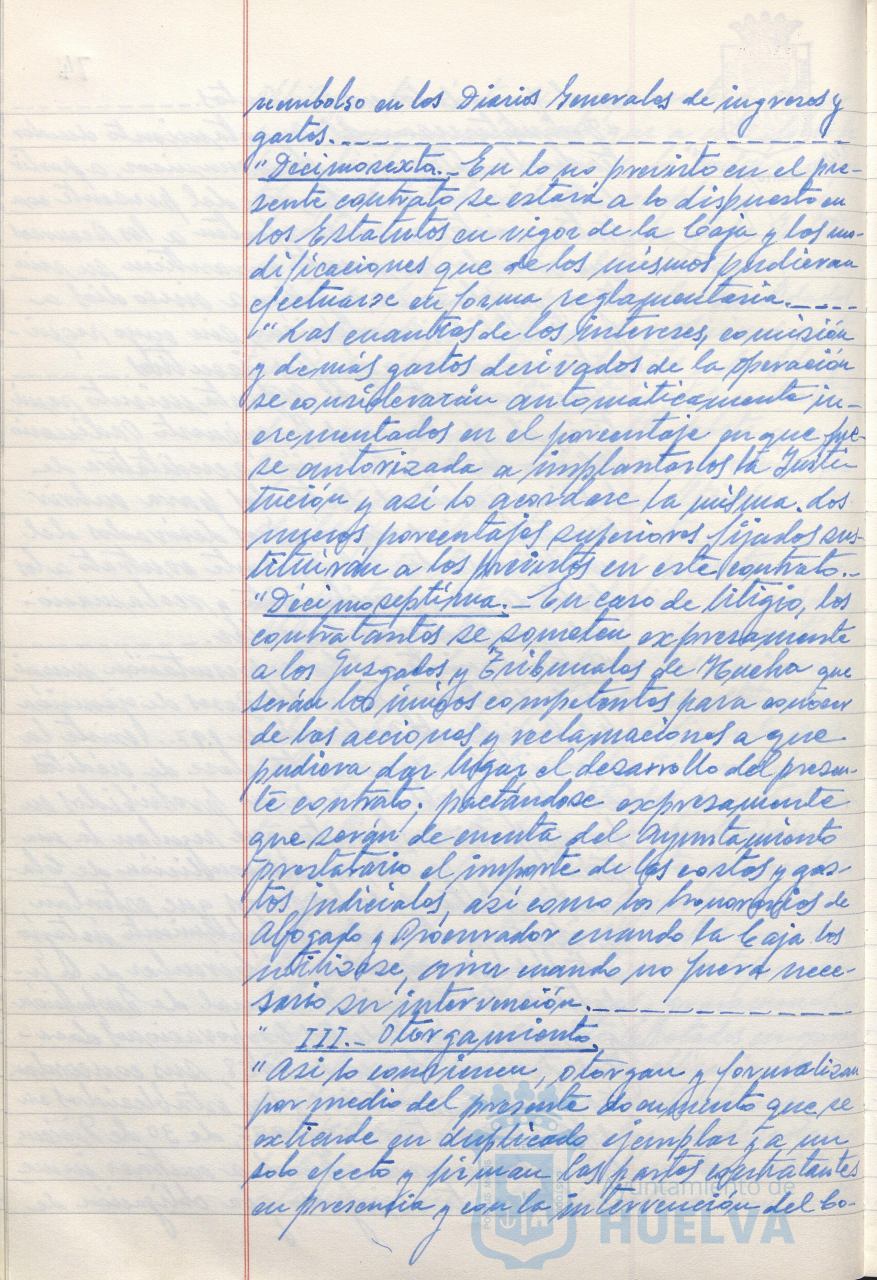 reembolso en los Diarios Generales de ingresos y
gastos.
"Décimosexta.- En lo no previsto en el pre-
sente contrato se estará a lo dispuesto en
los Estatutos en vigor de la Caja y las mo-
dificaciones que de los mismos pudieran
efectuarse en forma reglamentaria.
"Las cuantías de los intereses, comisión
y demás gastos derivados de la operación
se considerarán automáticamente in-
crementados en el porcentaje en que fue-
se autorizada a implantarlos la Insti-
tución y así lo acordase la misma. Los
nuevos porcentajes superiores fijados sus-
tituirán a los previstos en este contrato.-
"Décimoseptima.- En caso de litigio, los
contratantes se someten expresamente
a los Juzgados y Tribunales de Huelva que
serán los únicos competentes para conocer
de las acciones y reclamaciones a que
pudiera dar lugar el desarrollo del presen-
te contrato; pactándose expresamente
que serán de cuenta del Ayuntamiento
prestatario el importe de las costas y gas-
tos judiciales, así como los honorarios de
Abogado y Procurador cuando la Caja los
utilizase, aun cuando no fuera nece-
sario su intervención.
" III.- Otorgamiento.
"Así lo convienen, otorgan y formalizan
por medio del presente documento que se
extiende en duplicado ejemplar y a un
solo efecto y firman las partes contratantes
en presencia y con la intervención del Co-
Ayuntamiento de
HUELVA